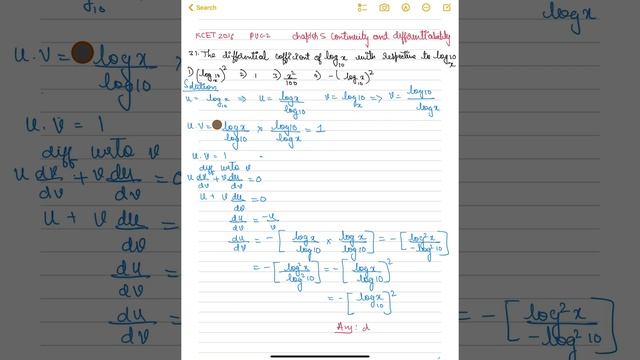 Search
KCET 2016 PUC-2 chapter 5 Continuity and differentiability
The differential coefficient of log₁₀x with respective to logₓ10
1) (log₁₀x)² 2) 1 3) x²/100 4) -(log₁₀x)²
Solution
u = log₁₀x ⇒ u = logx/log10 v = logₓ10 ⇒ v = log10/logx
u.v = logx/log10 × log10/logx = 1
u.v = 1
diff w.r.to v
u dv/dv + v du/dv = 0
u + v du/dv = 0
du/dv = -u/v
du/dv = -[logx/log10 × logx/log10] = -[log²x/-log²10]
= -[log²x/log²10] = -[logx/log10]²
= -[log₁₀x]²
Ans: d
logx
u.v = logx/log10
u.v = 1
diff w.r.to v
u dv/dv + v du/dv =
u + v du/dv =
du/dv =
du/dv =
= -[log²x/-log²10]